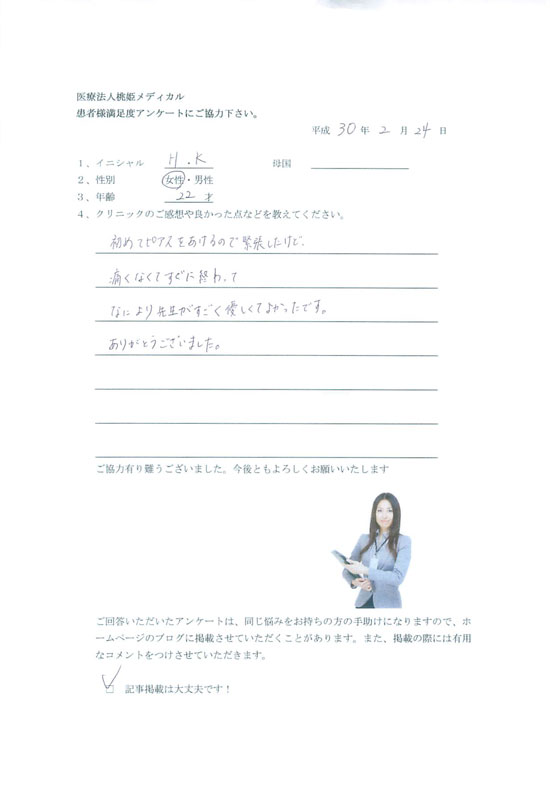 医療法人桃姫メディカル
患者様満足度アンケートにご協力下さい。
平成 30 年 2 月 24 日
1、イニシャル H.K 母国
2、性別 女性・男性
3、年齢 22 才
4、クリニックのご感想や良かった点などを教えてください。
初めてピアスをあけるので緊張したけど、
痛くなくてすぐに終わって
なにより先生がすごく優しくてよかったです。
ありがとうございました。
ご協力有り難うございました。今後ともよろしくお願いいたします
ご回答いただいたアンケートは、同じ悩みをお持ちの方の手助けになりますので、ホ
ームページのブログに掲載させていただくことがあります。また、掲載の際には有用
なコメントをつけさせていただきます。
□ 記事掲載は大丈夫です！